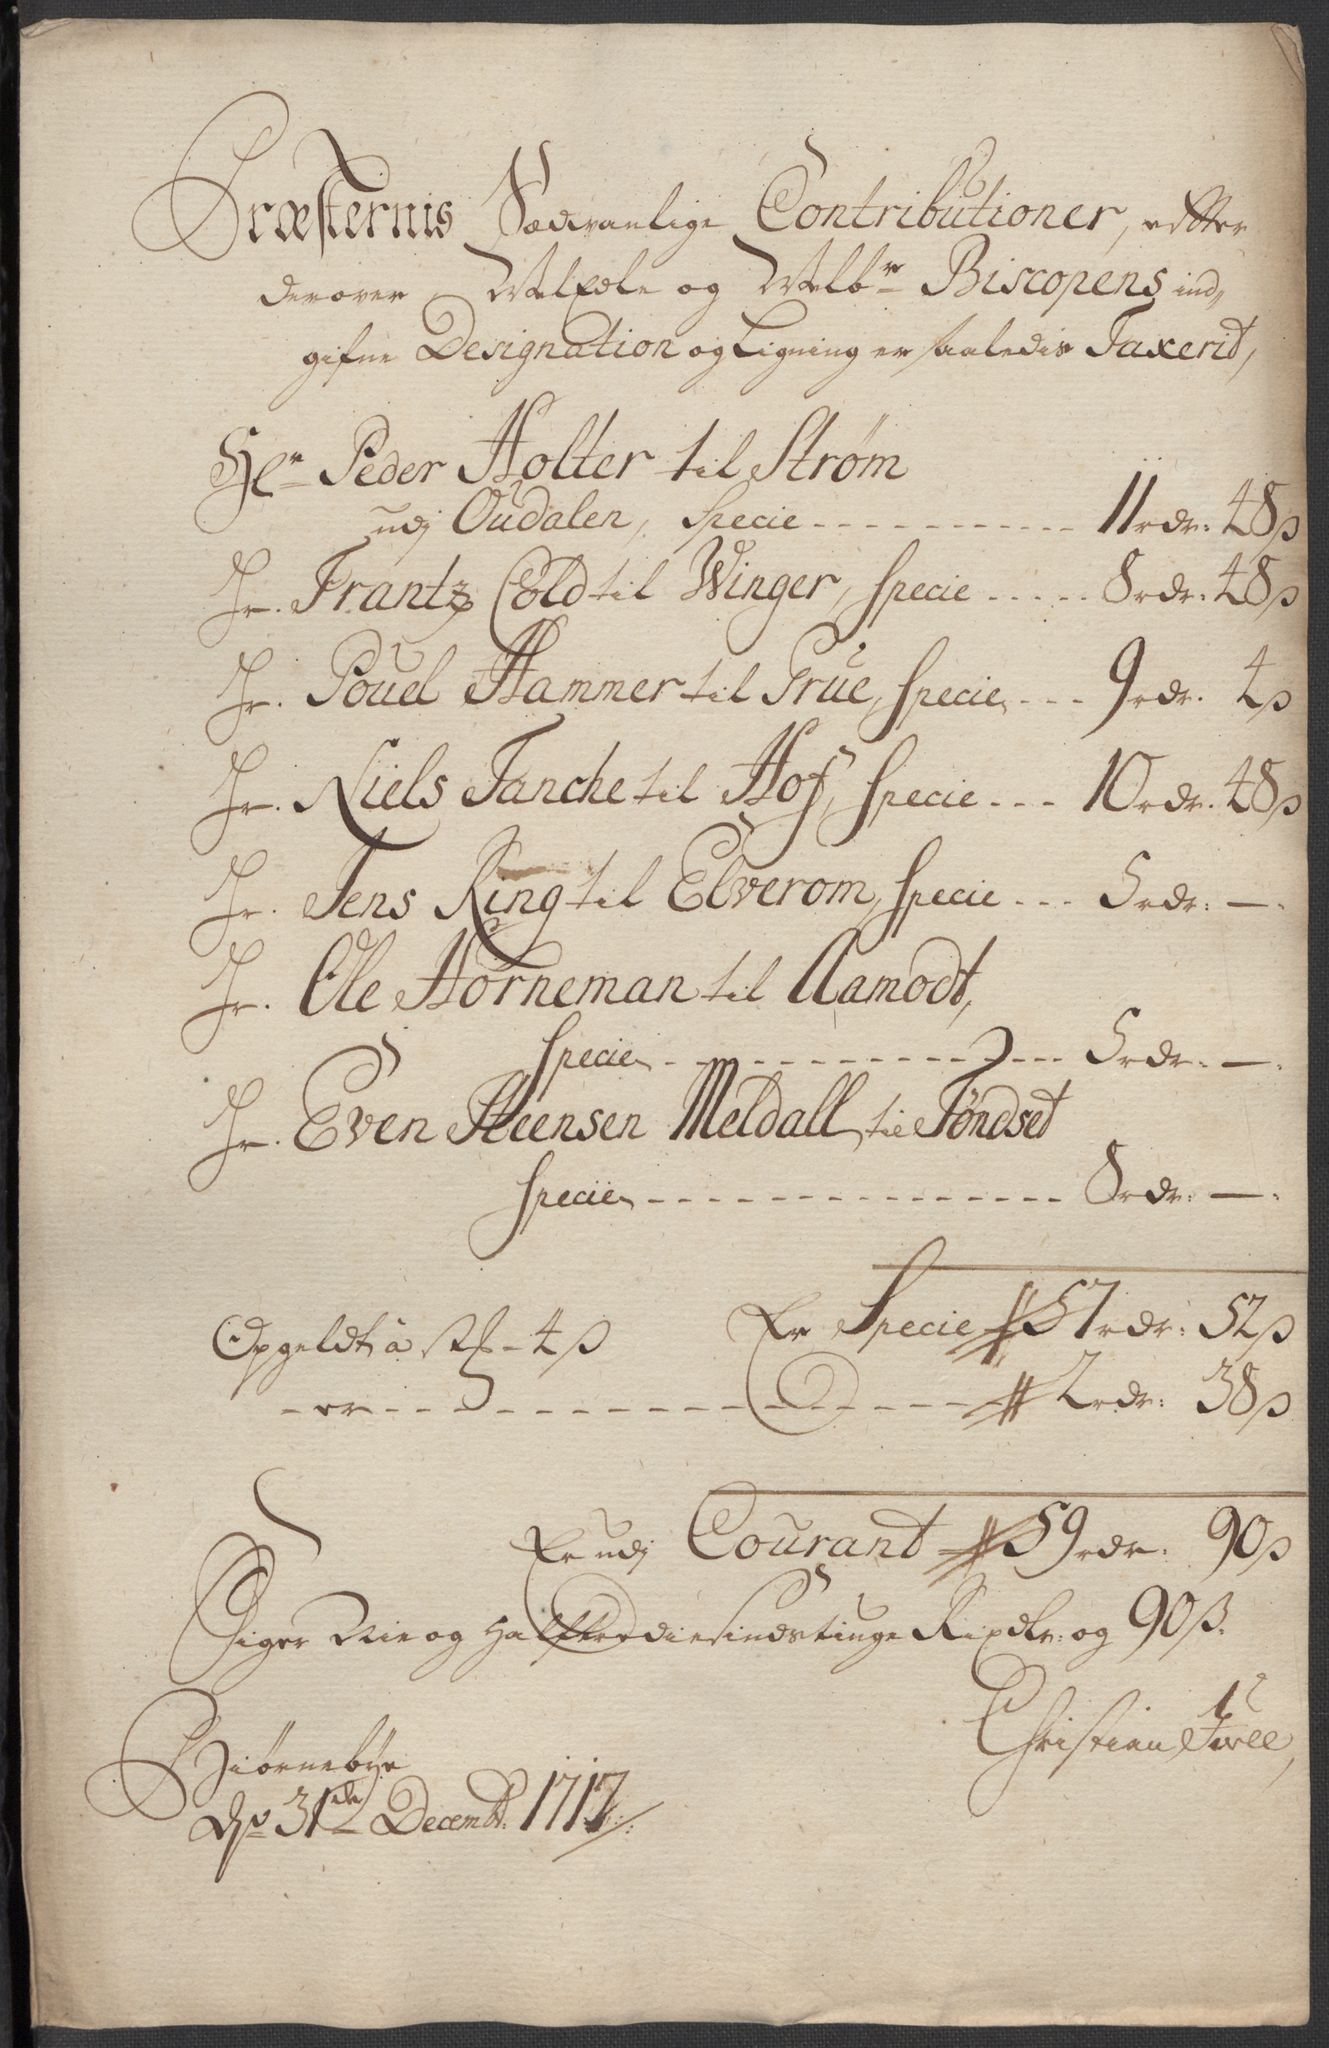 Præsternis Sædvanlige Contributioner, efter
derover WelEdle og Welbr Biscopens ind,,
gifne Designation og Ligning er saaledis Taxerit,
Hr Peder Holter til Strøm
udj Oudalen, Specie - - - 11 rdr: 48 ß
Hr. Frantz Cold til Winger, Specie - - - 8 rdr: 48 ß
Hr. Pouel Hammer til Grue, Specie - - - 9 rdr. 4 ß
Hr. Niels Tanche til Hof, Specie - - - 10 rdr. 48 ß
Hr. Jens Ring til Elverom, Specie - - - 5 rdr: —.
Hr. Ole Horneman til Aamodt,
Specie - - - 5 rdr: —.
Hr. Even Steensen Meldall til Tøndset
Specie - - - 8 rdr: —.
Er Specie 57 rdr: 52 ß
Opgeldt à Rdr - 4 ß
- er - - - 2 rdr: 38 ß
Er udj Courant 59 rdr: 90 ß
Siger Nie og Halftrediesindstiuge Rixdlr: og 90 ß.
Christian
Biørnebye
dend 31de Decembr: 1717